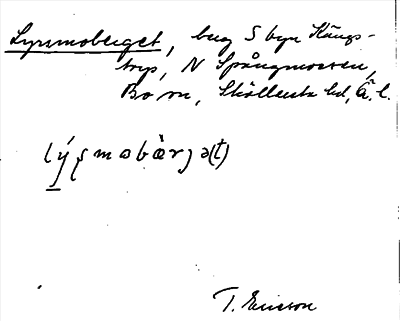 Lysmoberget, berg S byn Hängs-
torp, N Spångmossen,
Bo sn, Sköllersta hd, Ö. l.
lýsmobàrjə(t)
T. Ericson